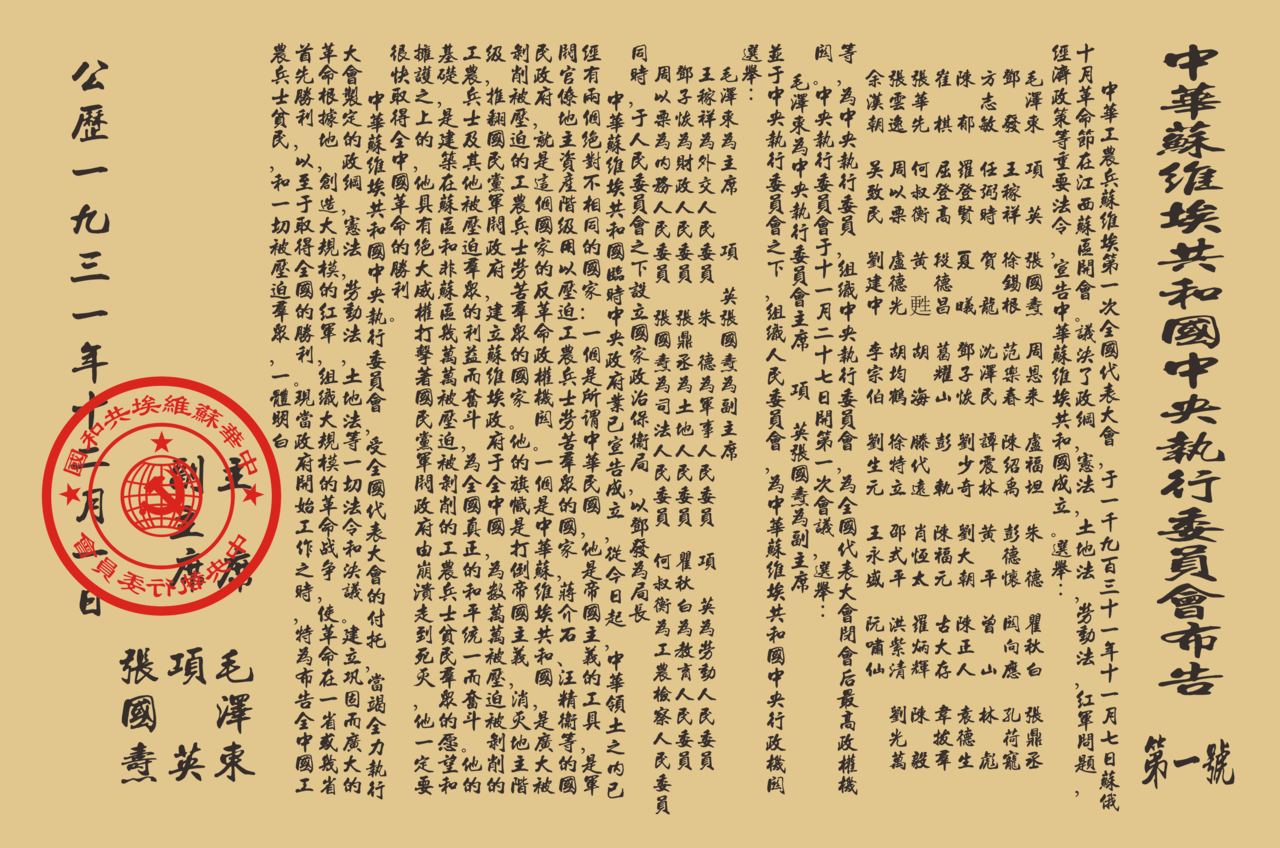 中華蘇維埃共和國中央執行委員會布告
第一號
中華工農兵蘇維埃第一次全國代表大會,于一千九百三十一年十一月七日蘇俄
十月革命節在江西蘇區開會。議決了政綱,憲法,土地法,勞動法,紅軍問題,
經濟政策等重要法令,宣告中華蘇維埃共和國成立。選舉:
毛澤東 項 英 張國燾 周恩來 盧福坦 朱 德 瞿秋白 張鼎丞
鄧 發 王稼祥 徐錫根 范樂春 陳紹禹 彭德懷 関向應 孔荷寵
方志敏 任弼時 賀 龍 沈澤民 譚震林 黃 平 曾 山 林 彪
陳 郁 羅登賢 夏 曦 鄧子恢 劉少奇 劉大朝 陳正人 袁德生
崔 棋 屈登高 段德昌 葛耀山 彭 軌 陳福元 古大存 韋拔羣
張華先 何叔衡 黃 甦 胡 海 滕代遠 肖恆太 羅炳輝 陳 毅
張雲逸 周以栗 盧德光 胡均鶴 徐特立 邵式平 洪紫清 劉光萬
余漢朝 吴致民 劉建中 李宗伯 劉生元 王永盛 阮嘯仙
等,為中央執行委員,組織中央執行委員會,為全國代表大會閉會后最高政權機
関。中央執行委員會于十一月二十七日開第一次會議,選舉:
毛澤東為中央執行委員會主席 項 英張國燾為副主席
並于中央執行委員會之下,組織人民委員會,為中華蘇維埃共和國中央行政機関
選舉:
毛澤東為主席 項 英張國燾為副主席
王稼祥為外交人民委員 朱 德為軍事人民委員 項 英為勞動人民委員
鄧子恢為財政人民委員 張鼎丞為土地人民委員 瞿秋白為教育人民委員
周以栗為內務人民委員 張國燾為司法人民委員 何叔衡為工農檢察人民委員
同時,于人民委員會之下設立國家政治保衛局,以鄧發為局長
中華蘇維埃共和國臨時中央政府業已宣告成立,從今日起,中華領土之內已
經有兩個絕對不相同的國家:一個是所謂中華民國,他是帝國主義的工具,是軍
閥官僚地主資產階级用以壓迫工農兵士勞苦羣眾的國家,蔣介石,汪精衛等的國
民政府,就是這個國家的反革命政權機関。一個是中華蘇維埃共和國,是廣大被
剝削被壓迫的工農兵士勞苦羣眾的國家。他的旗幟是打倒帝國主義,消灭地主階
级,推翻國民黨軍閥政府,建立蘇維埃政府于全中國,為數萬萬被壓迫被剝削的
工農兵士及其他被壓迫羣眾的利益而奮斗,為全國真正的和平統一而奮斗。他的
基礎,是建築在蘇區和非蘇區幾萬萬被壓迫被剝削的工農兵士貧民羣眾的愿望和
擁護之上的,他具有絕大威權打擊著國民黨軍閥政府由崩潰走到死灭,他一定要
很快取得全中國革命的勝利。
中華蘇維埃共和國中央執行委員會,受全國代表大會的付托,當竭全力執行
大會製定的政綱,憲法,勞動法,土地法等一切法令和決議。建立巩固而廣大的
革命根據地,創造大規模的紅軍,組織大規模的革命战争,使革命在一省或幾省
首先勝利,以至于取得全國的勝利。現當政府開始工作之時,特為布告全中國工
農兵士貧民,和一切被壓迫羣眾,一體明白
主 席 毛澤東
副主席 項 英
張國燾
公歷一九三一年十二月一日
中華蘇維埃共和國
中央執行委員會